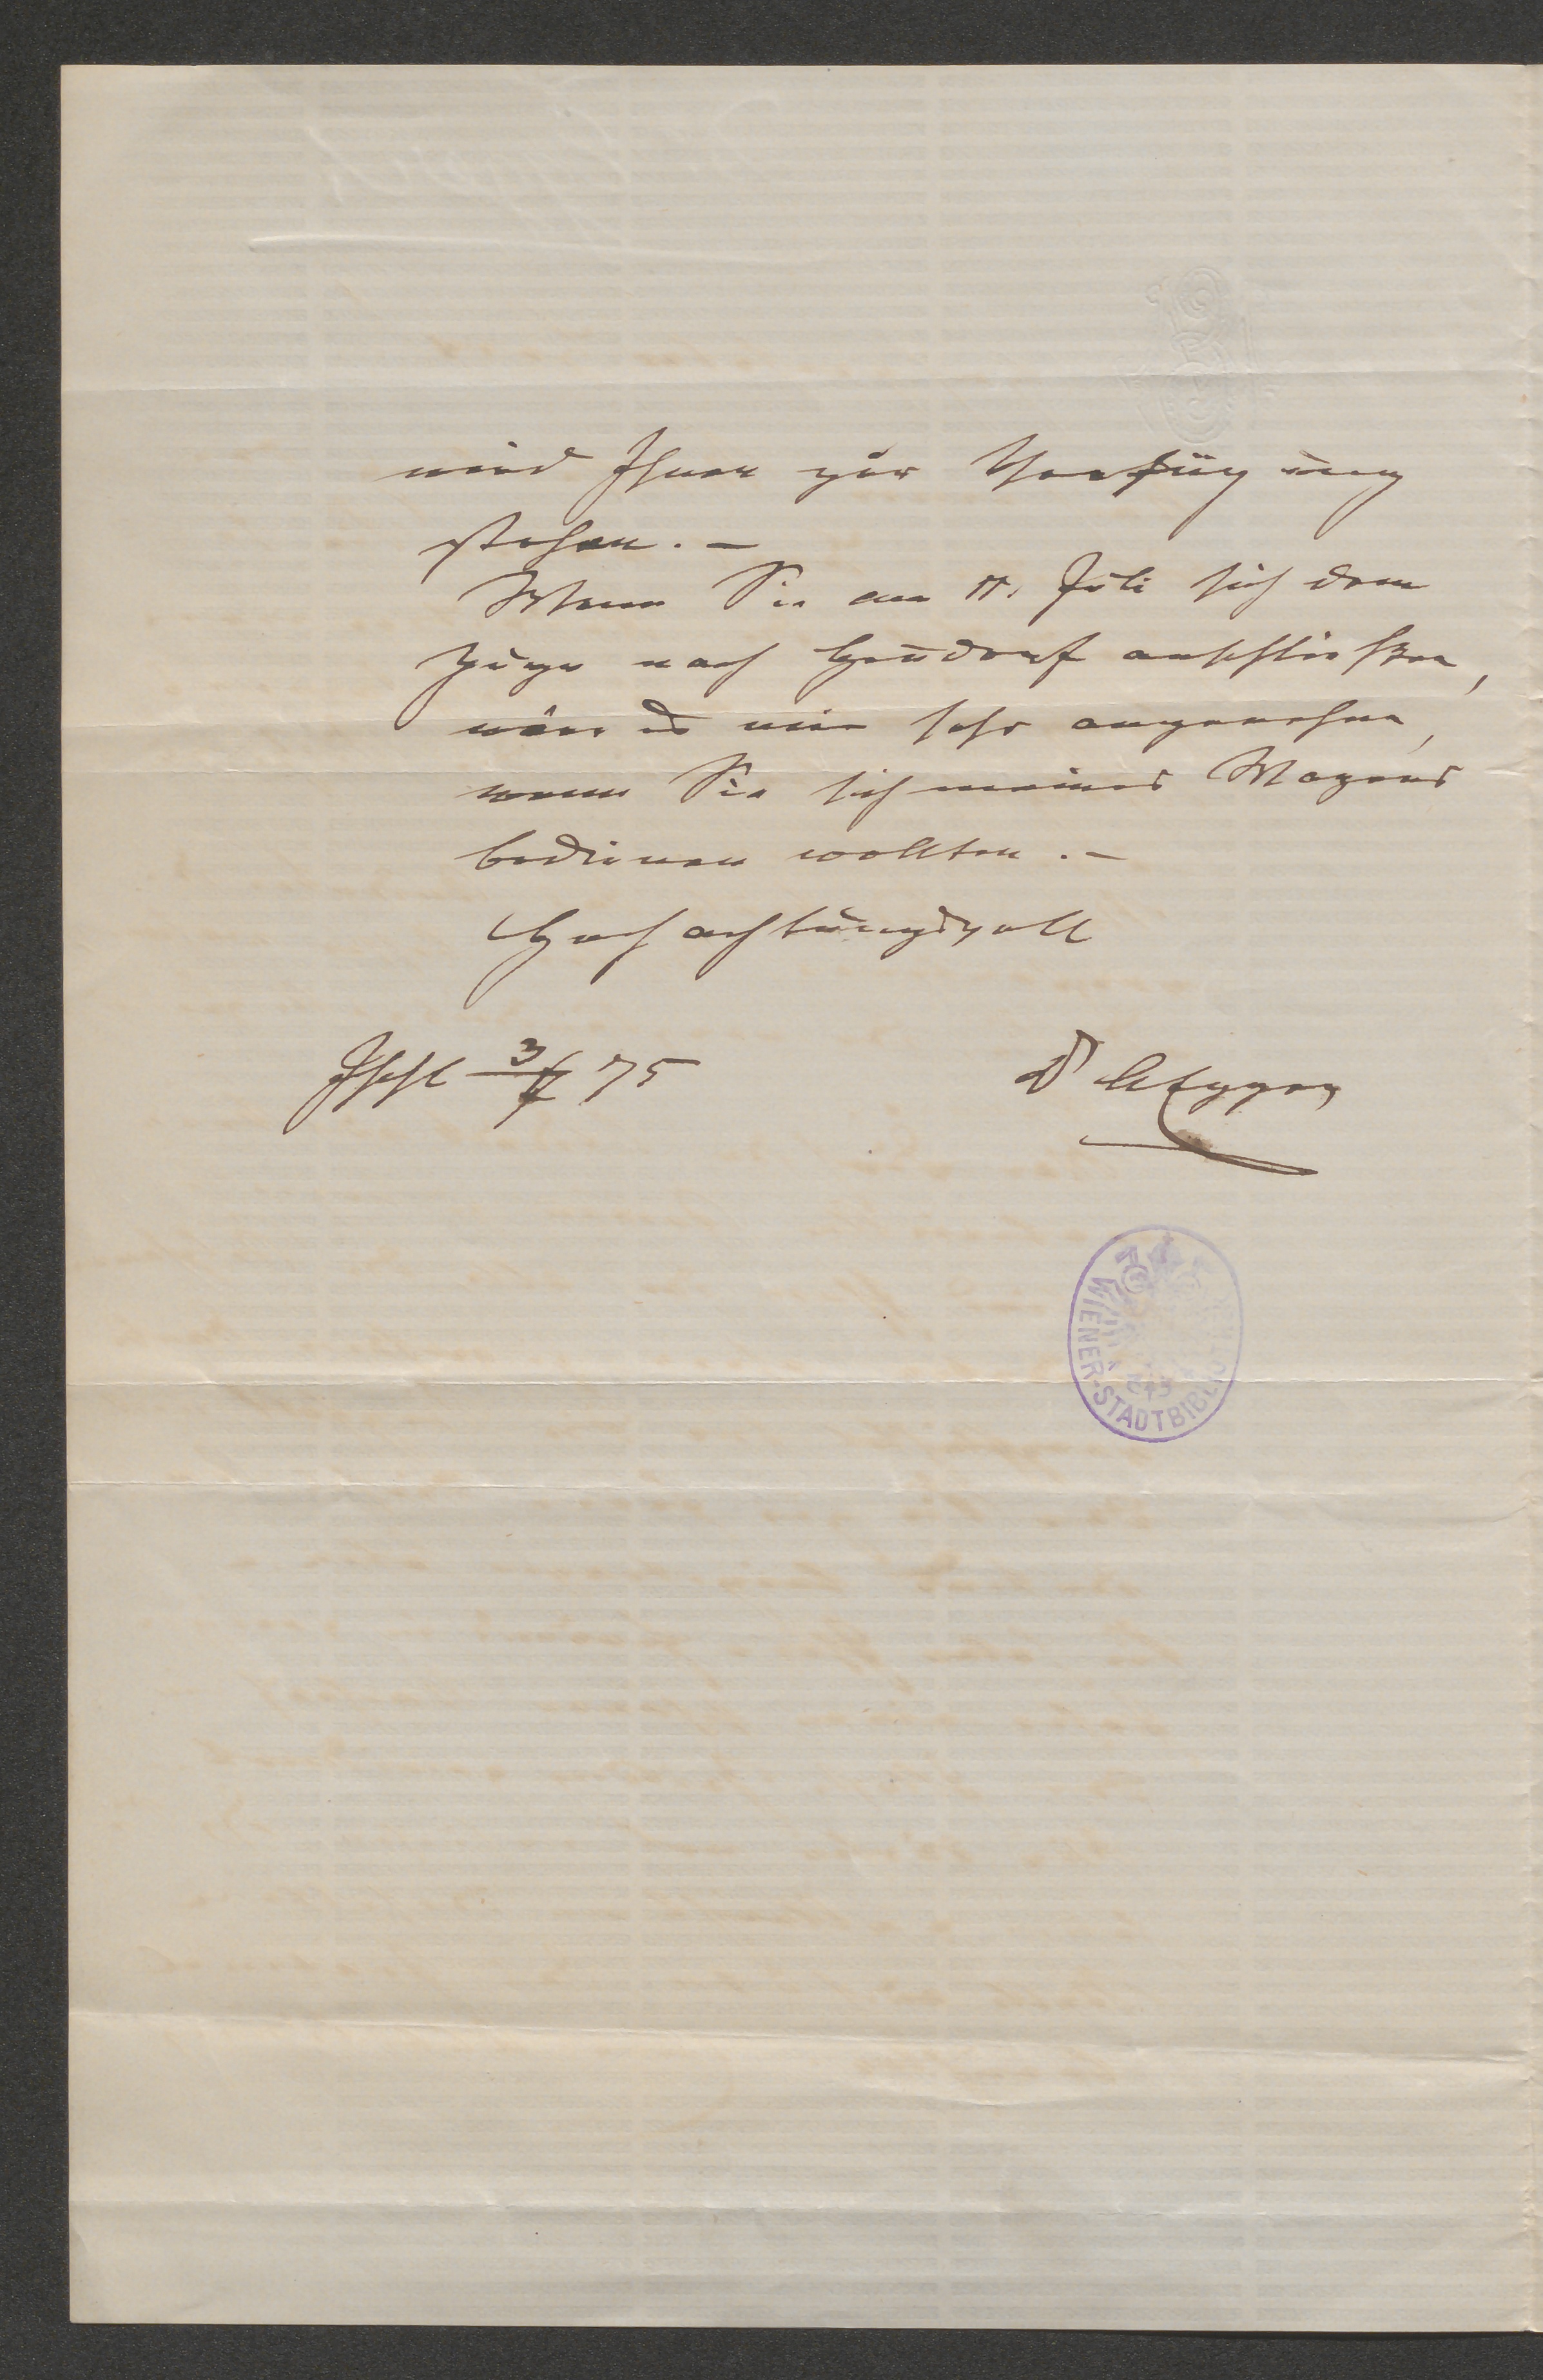 wird Ihnen zur Verfügung
stehen. –
Wenn Sie am 11. Juli sich dem
Zuge nach anschließen,
wäre es mir sehr angenehm,
wenn Sie sich meines Wagens
bedienen wollten. –
Hochachtungsvoll
Ischl 3/7 75
Dr
WIENER-STADTBIBLIOTHEK